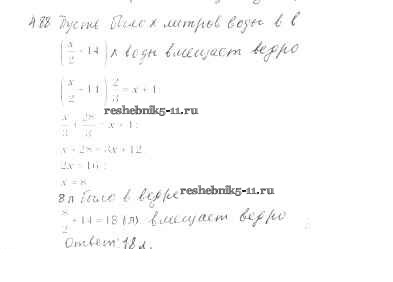 488 Пусть было x литров воды в в
(x/2 + 14) л воды вмещает ведро
(x/2 + 14) 2/3 = x + 4
reshebnik5-11.ru
x/3 + 28/3 = x + 4;
x + 28 = 3x + 12;
2x = 16;
x = 8
reshebnik5-11.ru
8 л было в ведре
8/2 + 14 = 18 (л) вмещает ведро
Ответ: 18 л.